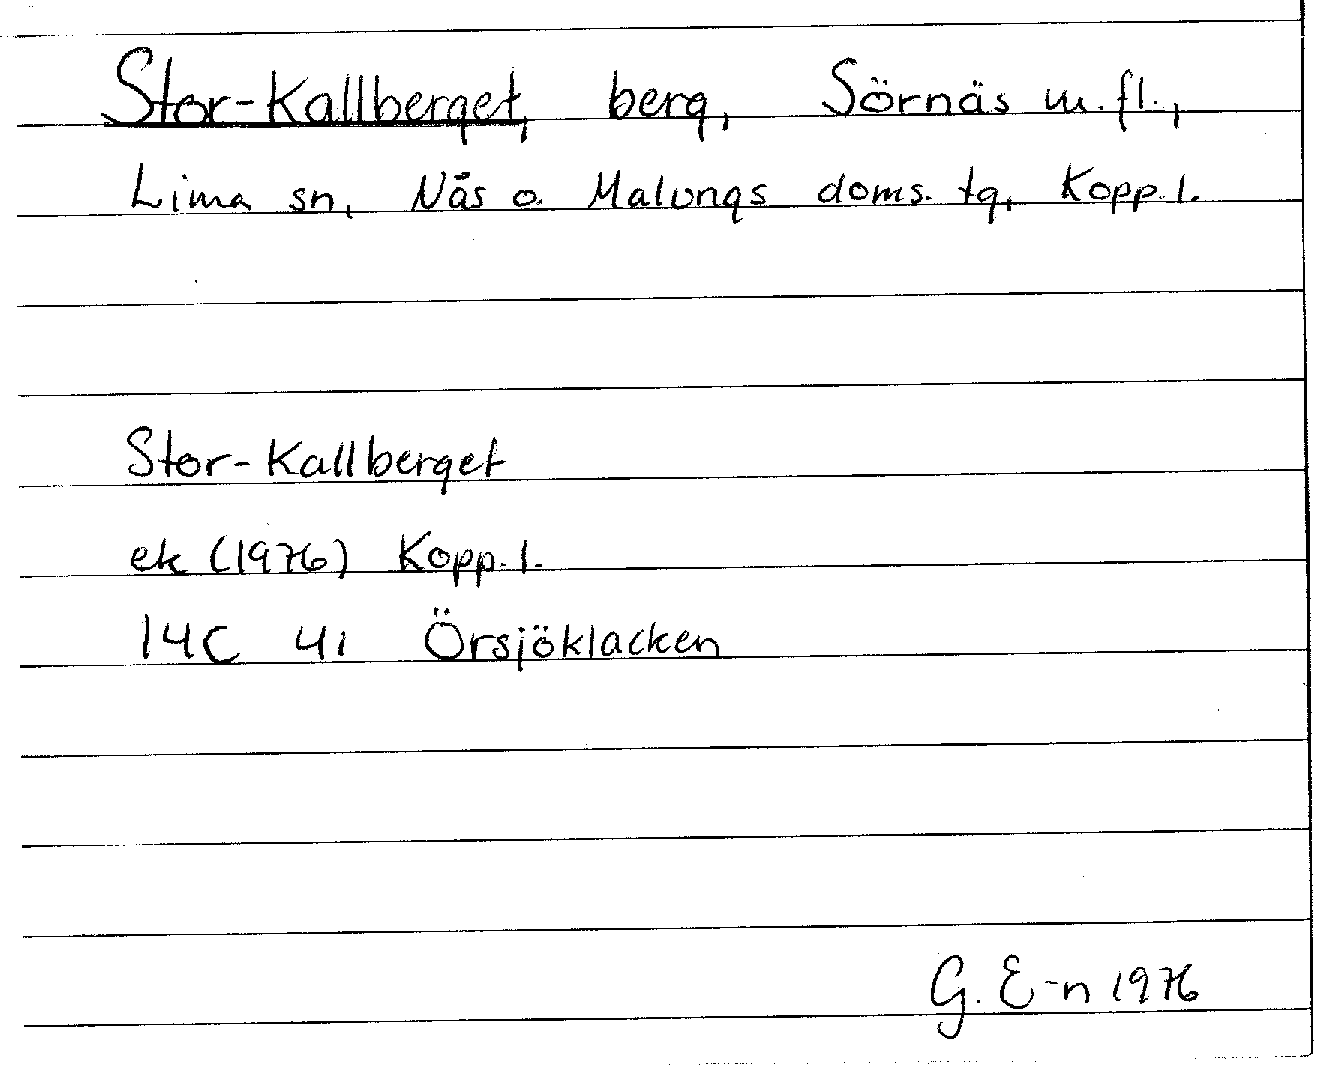 Stor-Kallberget, berg, Sörnäs m.fl.,
Lima sn, Näs o. Malungs doms. tg, Kopp.l.
Stor-Kallberget
ek (1976) Kopp.l.
14C 4i Örsjöklacken
G. E-n 1976